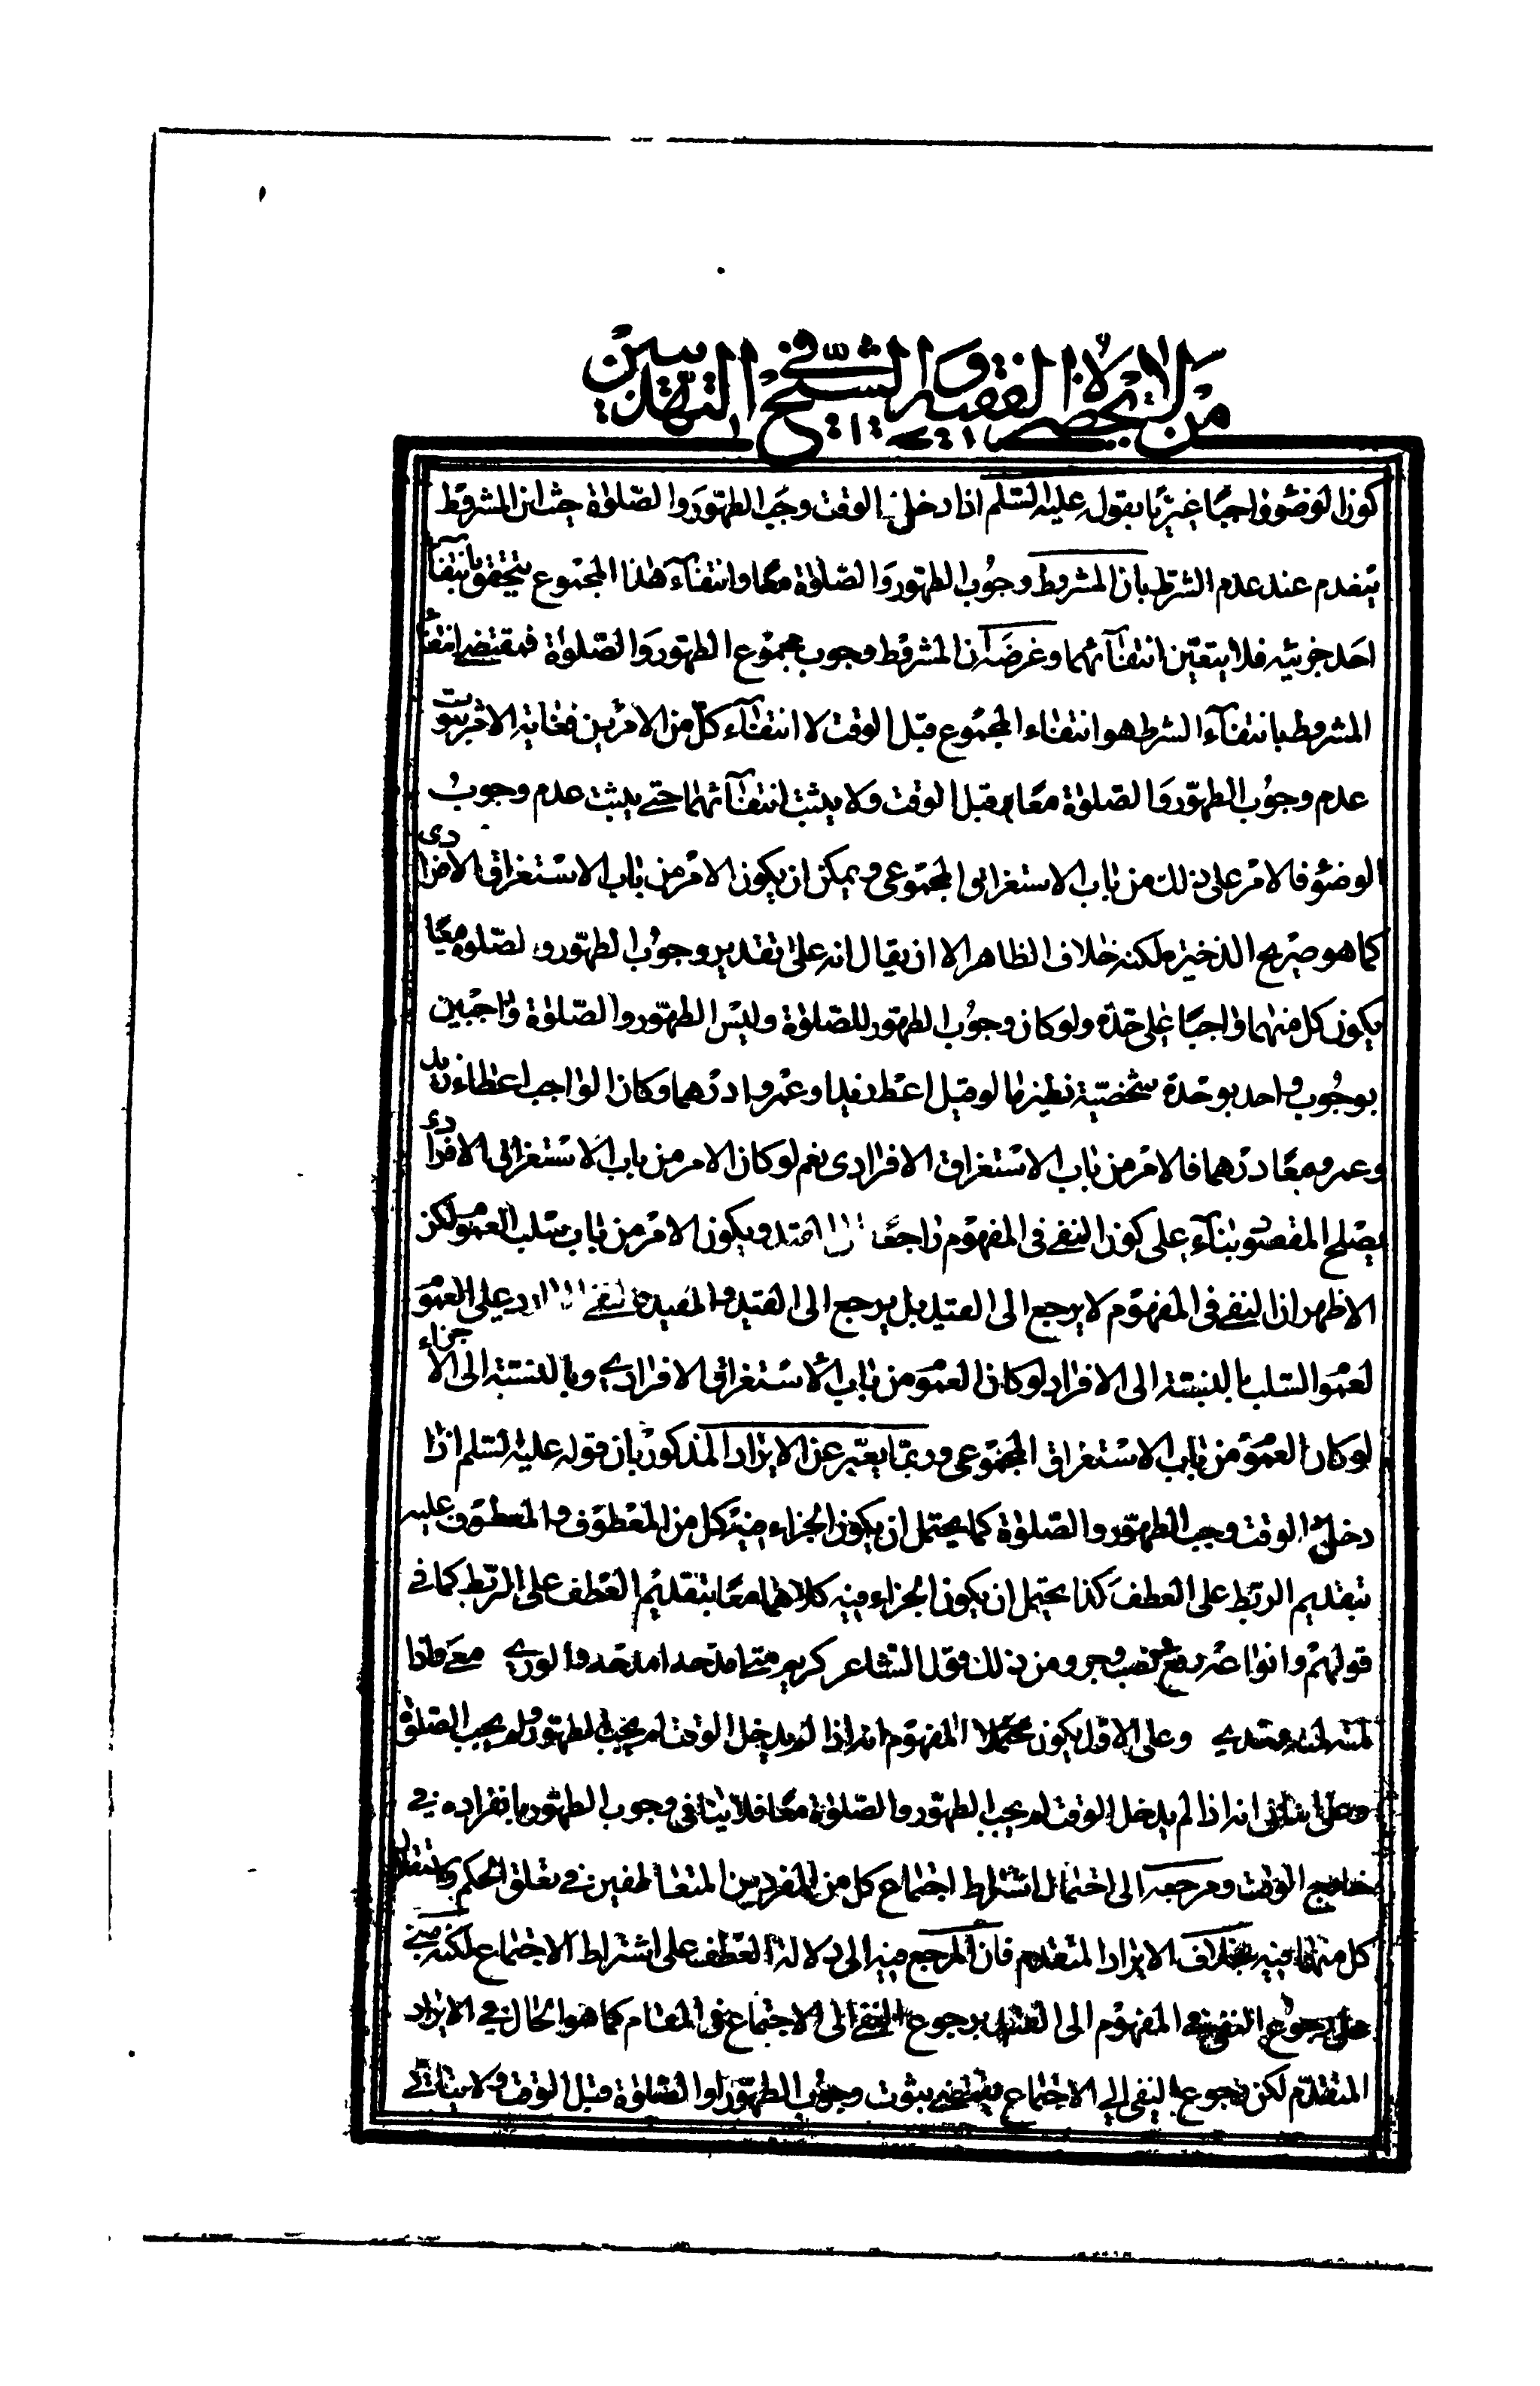 من لا يحضره الفقيه والشيخ في التهذيبين
كون الوضوء واجبًا غيريًا بقوله عليه السّلم اذا دخل الوقت وجب الطهور والصّلوة حيث ان المشروط
ينعدم عند عدم الشرط بان المشروط وجوب الطهور والصّلوة معًا وانتفاء هذا المجموع يتحقق بانتفاء
احد جزئيه فلا يتعيّن انتفاؤهما وغرضه ان المشروط وجوب مجموع الطهور والصّلوة فمقتضى انتفاء
المشروط بانتفاء الشرط هو انتفاء المجموع قبل الوقت لا انتفاء كل من الامرين فغاية الامر ثبوت
عدم وجوب الطهور والصّلوة معًا قبل الوقت ولا يثبت انتفائهما حتى يثبت عدم وجوب
الوضوء فالامر على ذلك من باب الاستغراق المجموعى ويمكن ان يكون الامر من باب الاستغراق الافرادى
كما هو صريح الذخيرة لكنه خلاف الظاهر الا ان يقال انه على تقدير وجوب الطهور والصّلوة معًا
يكون كل منهما واجبًا على حدة ولو كان وجوب الطهور للصّلوة وليس الطهور والصّلوة واجبين
بوجوب واحد بوحدة شخصيّة نظير ما لو قيل اعط زيدا وعمروا درهما وكان الواجب اعطاء زيد
وعمرو معًا درهما فالامر من باب الاستغراق الافرادى نعم لو كان الامر من باب الاستغراق الافرادى
يصلح المقصود بناء على كون النفى فى المفهوم راجعًا ويكون الامر من باب سلب العموم لكن
الاظهر ان النفى فى المفهوم لا يرجع الى القيد بل يرجع الى القيد والمقيد على العموم
لعموم السلب بالنسبة الى الافراد لو كان العموم من باب الاستغراق الافرادى وبالنسبة الى الاجزاء
لو كان العموم من باب الاستغراق المجموعى وربّما يعبّر عن الايراد المذكور بان قوله عليه السّلم اذا
دخل الوقت وجب الطهور والصّلوة كما يحتمل ان يكون الجزاء فيه كل من المعطوف والمعطوف عليه
بتقديم الربط على العطف كذا يحتمل ان يكون الجزاء فيه كلاهما معًا بتقديم العطف على الربط كما فى
قولهم وانواعه رفع ونصب وجر ومن ذلك قول الشاعر كريم متى امدحه امدحه والورى معى واذا
لمته لمته وحدى وعلى الاول يكون المفهوم انه اذا لم يدخل الوقت لم يجب الطهور ولم يجب الصلوة
وعلى الثانى انه اذا لم يدخل الوقت لم يجب الطهور والصّلوة معًا فلا ينافى وجوب الطهور بانفراده فى
خارج الوقت ومرجعه الى احتمال اشتراط اجتماع كل من المفردين المتعاطفين فى تعلق الحكم واستقلال
كل منهما فيه بخلاف الايراد المتقدم فان المرجع فيه الى دلالة العطف على اشتراط الاجتماع لكنه مبنى
على رجوع النفى فى المفهوم الى القيد برجوع النفى الى الاجتماع فى المقام كما هو الحال فى الايراد
المتقدّم لكن رجوع النفى الى الاجتماع يقتضى ثبوت وجوب الطهور او الصّلوة قبل الوقت ولا